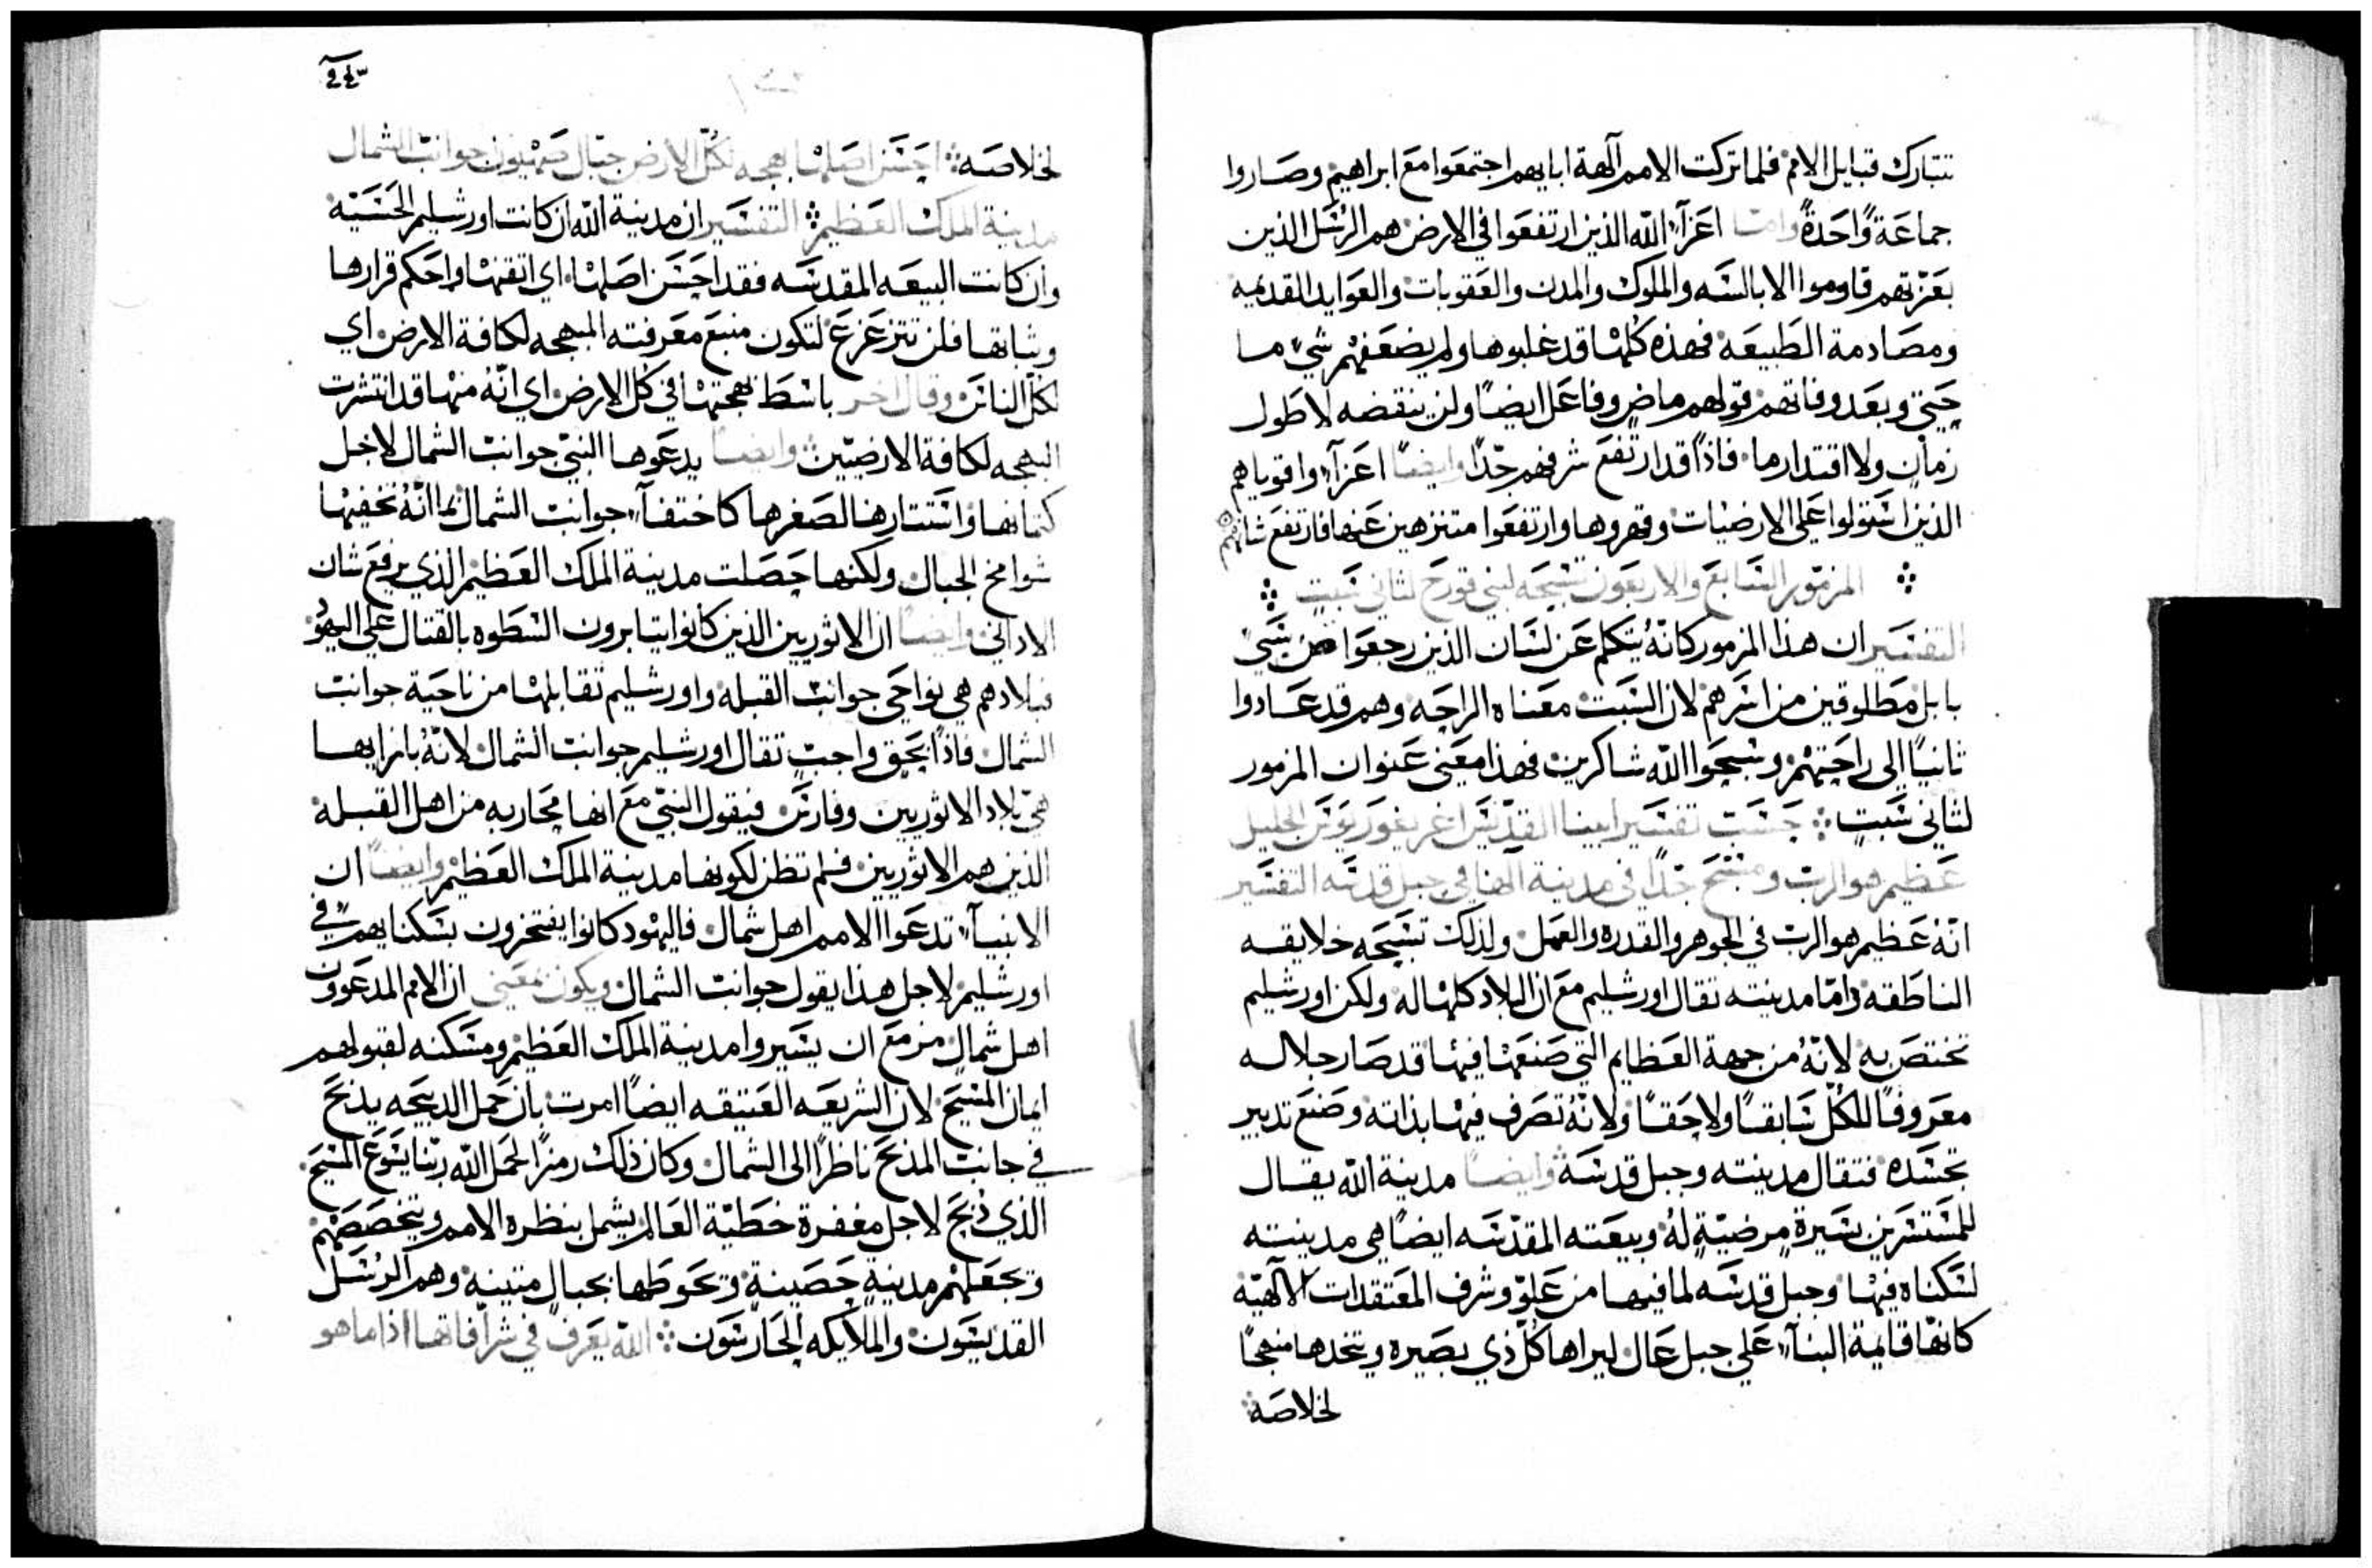 تتبارك قبايل الامم فلما تركت الامم آلهة ابايهم اجتمعوا مع ابراهيم وصاروا
جماعةً واحدةً وامّا اعزآء الله الذين ارتفعوا في الارض هم الرسل الذين
بعزتهم قاوموا الابالسه والملوك والمدن والعقوبات والعوايد القديمه
ومصادمة الطبيعه فهذه كلها قد غلبوها ولم يضعفهم شيء ما
حتى وبعد وفاتهم قولهم ماضٍ وفاعل ايضًا ولن ينقضه لا طول
زمان ولا اقتدار ما فاذًا قد ارتفع شرفهم جدًا وايضًا اعزآء واقوياهم
الذين استولوا على الارضيات وقهروها وارتفعوا متنزهين عنها فارتفع شانهم
المزمور السابع والاربعون تسبحه لبني قورح لثاني سبتٍ
التفسير ان هذا المزمور كانهُ يتكلم عن لسان الذين رجعوا من سبي
بابل مطلوقين من اسرهم لان السبت معناه الراحه وهم قد عادوا
ثانيًا الى راحتهم وسبحوا الله شاكرين فهذا معنى عنوان المزمور
لثاني سبتٍ حسب تفسير ابينا القديس اغريغوريوس الجليل
عظيم هو الرب ومسبح جدًا في مدينة الهنا في جبل قدسه التفسير
انّهُ عظيم هو الرب في الجوهر والقدره والعمل ولذلك تسبحه خلايقه
الناطقه وامّا مدينته تقال اورشليم مع ان البلاد كلها له ولكن اورشليم
تختص به لانّهُ من جهة العظايم التي صنعها فيها قد صار جلاله
معروفًا للكل سابقًا ولاحقًا ولانّهُ تصرف فيها بذاته وصنع تدبير
تجسده فتقال مدينته وجبل قدسه وايضًا مدينة الله يقال
للمستسرين بسيرةٍ مرضيّةٍ لهُ وبيعته المقدسه ايضًا هي مدينته
لسكناه فيها وجبل قدسه لما فيها من علوّ وشرف المعتقدات الآلهيّه
كانها قايمة البنآء على جبل عال ليراها كل ذي بصيره ويتخدها منهجًا
لخلاصه
لخلاصه احسن اصلها بهجه لكل الارض جبال صهيون جوانب الشمال
مدينة الملك العظيم التفسير ان مدينة الله ان كانت اورشليم الحسيّه
وان كانت البيعه المقدسه فقد احسن اصلها اي اتقنها واحكم قرارها
وثباتها فلن تتزعزع لتكون منبع معرفته المبهجه لكافة الارض اي
لكل الناس وقال اخر باسط بهجتها في كل الارض اي انّهُ منها قد انتشرت
البهجه لكافة الارضيّين وايضًا يدعوها النبيّ جوانب الشمال لاجل
كتمانها واستتارها لصغرها كاختفآء جوانب الشمال بما انّهُ تخفيها
شوامخ الجبال ولكنها حصلت مدينة الملك العظيم الذي يرفع شان
الاداني وايضًا ان الاثوريين الذين كانوا يتابرون السطوه بالقتال على اليهود
فبلادهم هي نواحي جوانب القبله واورشليم تقابلها من ناحية جوانب
الشمال فاذًا بحق واجبٍ تقال اورشليم جوانب الشمال لانّهُ بازايها
هي بلاد الاثوريين وفارس فيقول النبيّ مع انها محاربه من اهل القبله
الذين هم الاثوريين فلم تظن لكونها مدينة الملك العظيم وايضًا ان
الانبيآء تدعوا الامم اهل شمال فاليهود كانوا يفتخرون بسكنايهم في
اورشليم لاجل هذا يقول جوانب الشمال ويكون بمعنى ان الامم المدعوون
اهل شمال مزمع ان يسيروا مدينة الملك العظيم ومسكنه لقبولهم
ايمان المسيح لان الشريعه العتيقه ايضًا امرت بان حمل الدبيحه يذبح
في جانب المذبح ناظرًا الى الشمال وكان ذلك رمزًا لحمل الله ربنا يسوع المسيح
الذي ذُبح لاجل مغفرة خطيّة العالم يشمل بنظره الامم ويتخصصهم
وتجعلهم مدينةٍ حصينةٍ وتحوطها بجبالٍ متينةٍ وهم الرسل
القديسون والملايكه الحارسون الله يعرف في شرافاتها اذا ما هو